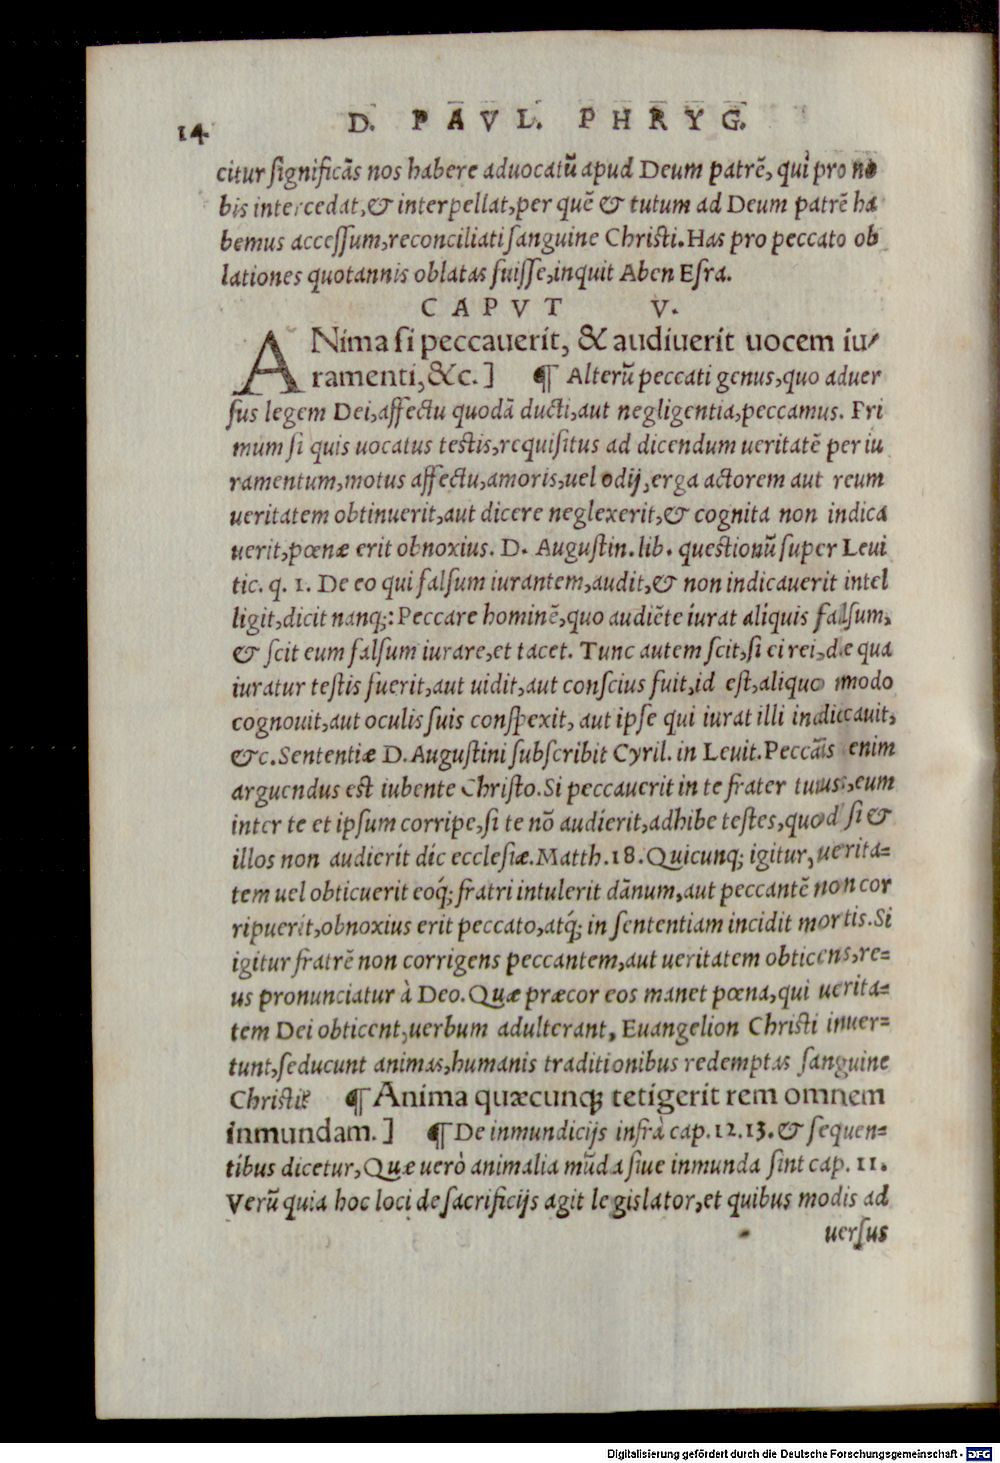 14 D. PAVL. PHRYG.
citur significās nos habere aduocatū apud Deum patrē, qui pro no
bis intercedat, & interpellat, per quē & tutum ad Deum patrē ha
bemus accessum, reconciliati sanguine Christi. Has pro peccato ob
lationes quotannis oblatas fuisse, inquit Aben Esra.
CAPVT V.
ANima si peccauerit, & audiuerit uocem iu-
ramenti, &c.] ¶ Alterū peccati genus, quo aduer
sus legem Dei, affectu quodā ducti, aut negligentia, peccamus. Pri
mum si quis uocatus testis, requisitus ad dicendum ueritatē per iu
ramentum, motus affectu, amoris, uel odij, erga actorem aut reum
ueritatem obtinuerit, aut dicere neglexerit, & cognita non indica
uerit, pœnæ erit obnoxius. D. Augustin. lib. questionū super Leui
tic. q. 1. De eo qui falsum iurantem, audit, & non indicauerit intel
ligit, dicit nanq;: Peccare hominē, quo audiēte iurat aliquis falsum,
& scit eum falsum iurare, et tacet. Tunc autem scit, si ei rei, de qua
iuratur testis fuerit, aut uidit, aut conscius fuit, id est, aliquo modo
cognouit, aut oculis suis conspexit, aut ipse qui iurat illi indicauit,
&c. Sententiæ D. Augustini subscribit Cyril. in Leuit. Peccās enim
arguendus est iubente Christo. Si peccauerit in te frater tuus, eum
inter te et ipsum corripe, si te nō audierit, adhibe testes, quod si &
illos non audierit dic ecclesiæ. Matth. 18. Quicunq; igitur, uerita-
tem uel obticuerit eoq́; fratri intulerit dānum, aut peccantē non cor
ripuerit, obnoxius erit peccato, atq́; in sententiam incidit mortis. Si
igitur fratrē non corrigens peccantem, aut ueritatem obticens, re-
us pronunciatur à Deo. Quæ præcor eos manet pœna, qui uerita-
tem Dei obticent, uerbum adulterant, Euangelion Christi inuer-
tunt, seducunt animas, humanis traditionibus redemptas sanguine
Christi? ¶ Anima quæcunq; tetigerit rem omnem
inmundam.] ¶ De inmundicijs infrà cap. 12. 13. & sequen-
tibus dicetur, Quæ uerò animalia mūda siue inmunda sint cap. 11.
Verū quia hoc loci de sacrificijs agit legislator, et quibus modis ad
uersus
Digitalisierung gefördert durch die Deutsche Forschungsgemeinschaft - DFG